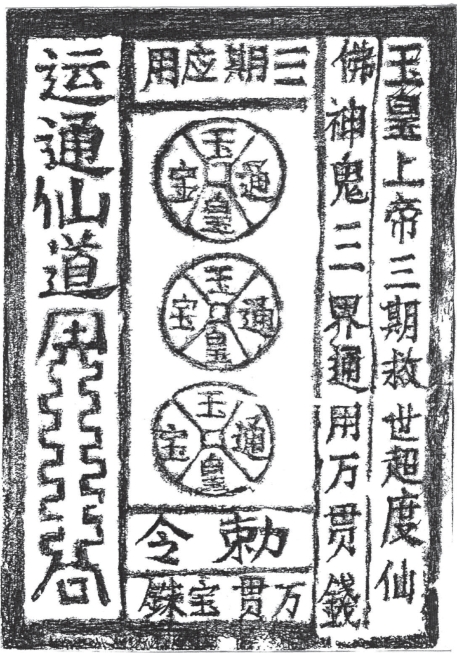 玉皇上帝三期救世超度仙
佛神鬼三界通用万贯錢
三期应用
玉皇通宝
玉皇通宝
玉皇通宝
勅令
万贯宝
运通仙道